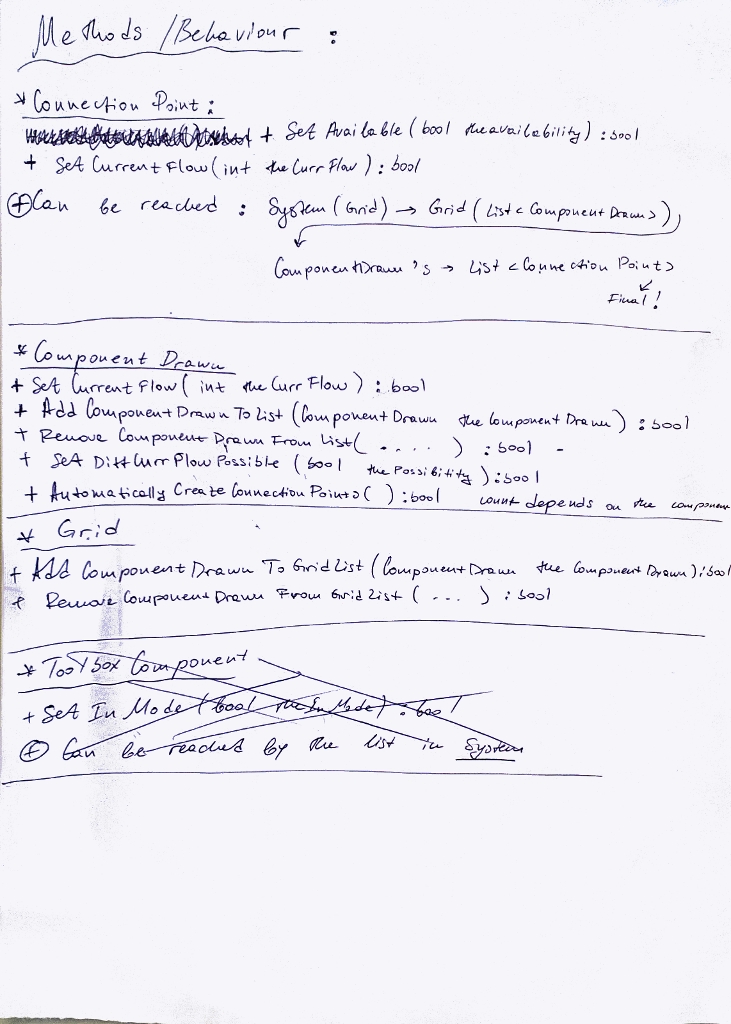 Methods / Behaviour :
* Connection Point :
+ Set Available ( bool theavailability ) : bool
+ Set Current Flow ( int the Curr Flow ) : bool
⊕ Can be reached : System ( Grid ) → Grid ( List < Component Drawn > )
Component Drawn 's → List < Connection Point >
Final !
* Component Drawn
+ Set Current Flow ( int the Curr Flow ) : bool
+ Add Component Drawn To List ( Component Drawn the Component Drawn ) : bool
+ Remove Component Drawn From List ( . . . . ) : bool -
+ Set Diff Curr Flow Possible ( bool the Possibility ) : bool
+ Automatically Create Connection Points ( ) : bool count depends on the component
* Grid
+ Add Component Drawn To Grid List ( Component Drawn the Component Drawn ) : bool
+ Remove Component Drawn From Grid List ( ... ) : bool
* Toolbox Component
+ Set In Mode ( bool the In Mode ) : bool
⊕ Can be reached by the list in System